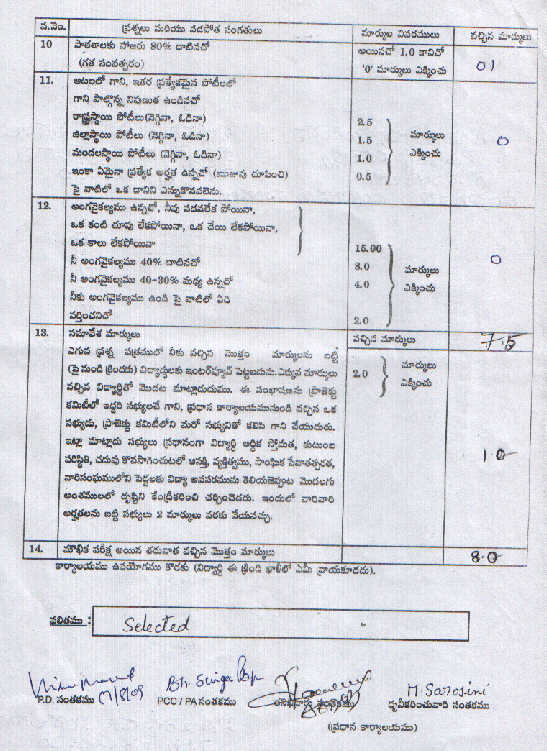 వ.నెం. ప్రశ్నలు మరియు వడపోత సంగతులు మార్కుల వివరములు వచ్చిన మార్కులు
10 పాఠశాలకు హాజరు 80% దాటినదో అయినచో 1.0 కానిచో 01
(గత సంవత్సరం) '0' మార్కులు ఎక్కించు
11. ఆటలలో గాని, ఇతర ప్రత్యేకమైన పోటీలలో
గాని పాల్గొన్న నిపుణత ఉండినచో
రాష్ట్రస్థాయి పోటీలు (నెగ్గినా, ఓడినా) 2.5
జిల్లాస్థాయి పోటీలు (నెగ్గినా, ఓడినా) 1.5 మార్కులు 0
మండలస్థాయి పోటీలు (నెగ్గినా, ఓడినా) 1.0 ఎక్కించు
ఇంకా ఏమైనా ప్రత్యేక అర్హత ఉన్నచో (ఋజువు చూపించి) 0.5
పై వాటిలో ఒక దానిని ఎన్నుకొనవలెను.
12. అంగవైకల్యము ఉన్నచో, నీవు నడవలేక పోయినా,
ఒక కంటి చూపు లేకపోయినా, ఒక చేయి లేకపోయినా,
ఒక కాలు లేకపోయినా 15.00
నీ అంగవైకల్యము 40% దాటినచో 8.0 మార్కులు 0
నీ అంగవైకల్యము 40-30% మధ్య ఉన్నచో 4.0 ఎక్కించు
నీకు అంగవైకల్యము ఉండి పై వాటిలో ఏది
వర్తించనిచో 2.0
13. సమావేశ మార్కులు వచ్చిన మార్కులు 7.5
ఎగువ ప్రశ్న పత్రములో నీకు వచ్చిన మొత్తం మార్కులను బట్టి మార్కులు
(పై నుండి క్రిందకు) విద్యార్థులకు ఇంటర్వ్యూ పెట్టబడును. ఎక్కువ మార్కులు 2.0 ఎక్కించు
వచ్చిన విద్యార్థితో మొదట మాట్లాడుదుము. ఈ సంభాషణను ప్రాజెక్టు
కమిటీలో ఇద్దరి సభ్యులచే గాని, ప్రధాన కార్యాలయమునుండి వచ్చిన ఒక
సభ్యుడు, ప్రాజెక్టు కమిటీలోని మరో సభ్యునితో కలిసి గాని చేయుదురు.
ఇట్లా మాట్లాడు సభ్యులు ప్రధానంగా విద్యార్థి ఆర్థిక స్తోమత, కుటుంబ
పరిస్థితి, చదువు కొనసాగించుటలో ఆసక్తి, వ్యక్తిత్వము, సాంఘిక సేవాతత్పరత, 1.0
వారిసంఘములోని పెద్దలకు విద్యా అవసరమును తెలియజెప్పుట మొదలగు
అంశములలో దృష్టిని కేంద్రీకరించి చర్చించెదరు. ఇందులో వారివారి
అర్హతలను బట్టి సభ్యులు 2 మార్కులు వరకు వేయవచ్చు.
14. మౌఖిక పరీక్ష అయిన తరువాత వచ్చిన మొత్తం మార్కులు 8.0
కార్యాలయము ఉపయోగము కొరకు (విద్యార్థి ఈ క్రింది ఖాళీలో ఏమీ వ్రాయకూడదు).
ఫలితము : Selected
M. Sarojini
P.D. సంతకము PCC / PA సంతకము ధృవీకరించువారి సంతకము
(ప్రధాన కార్యాలయము)